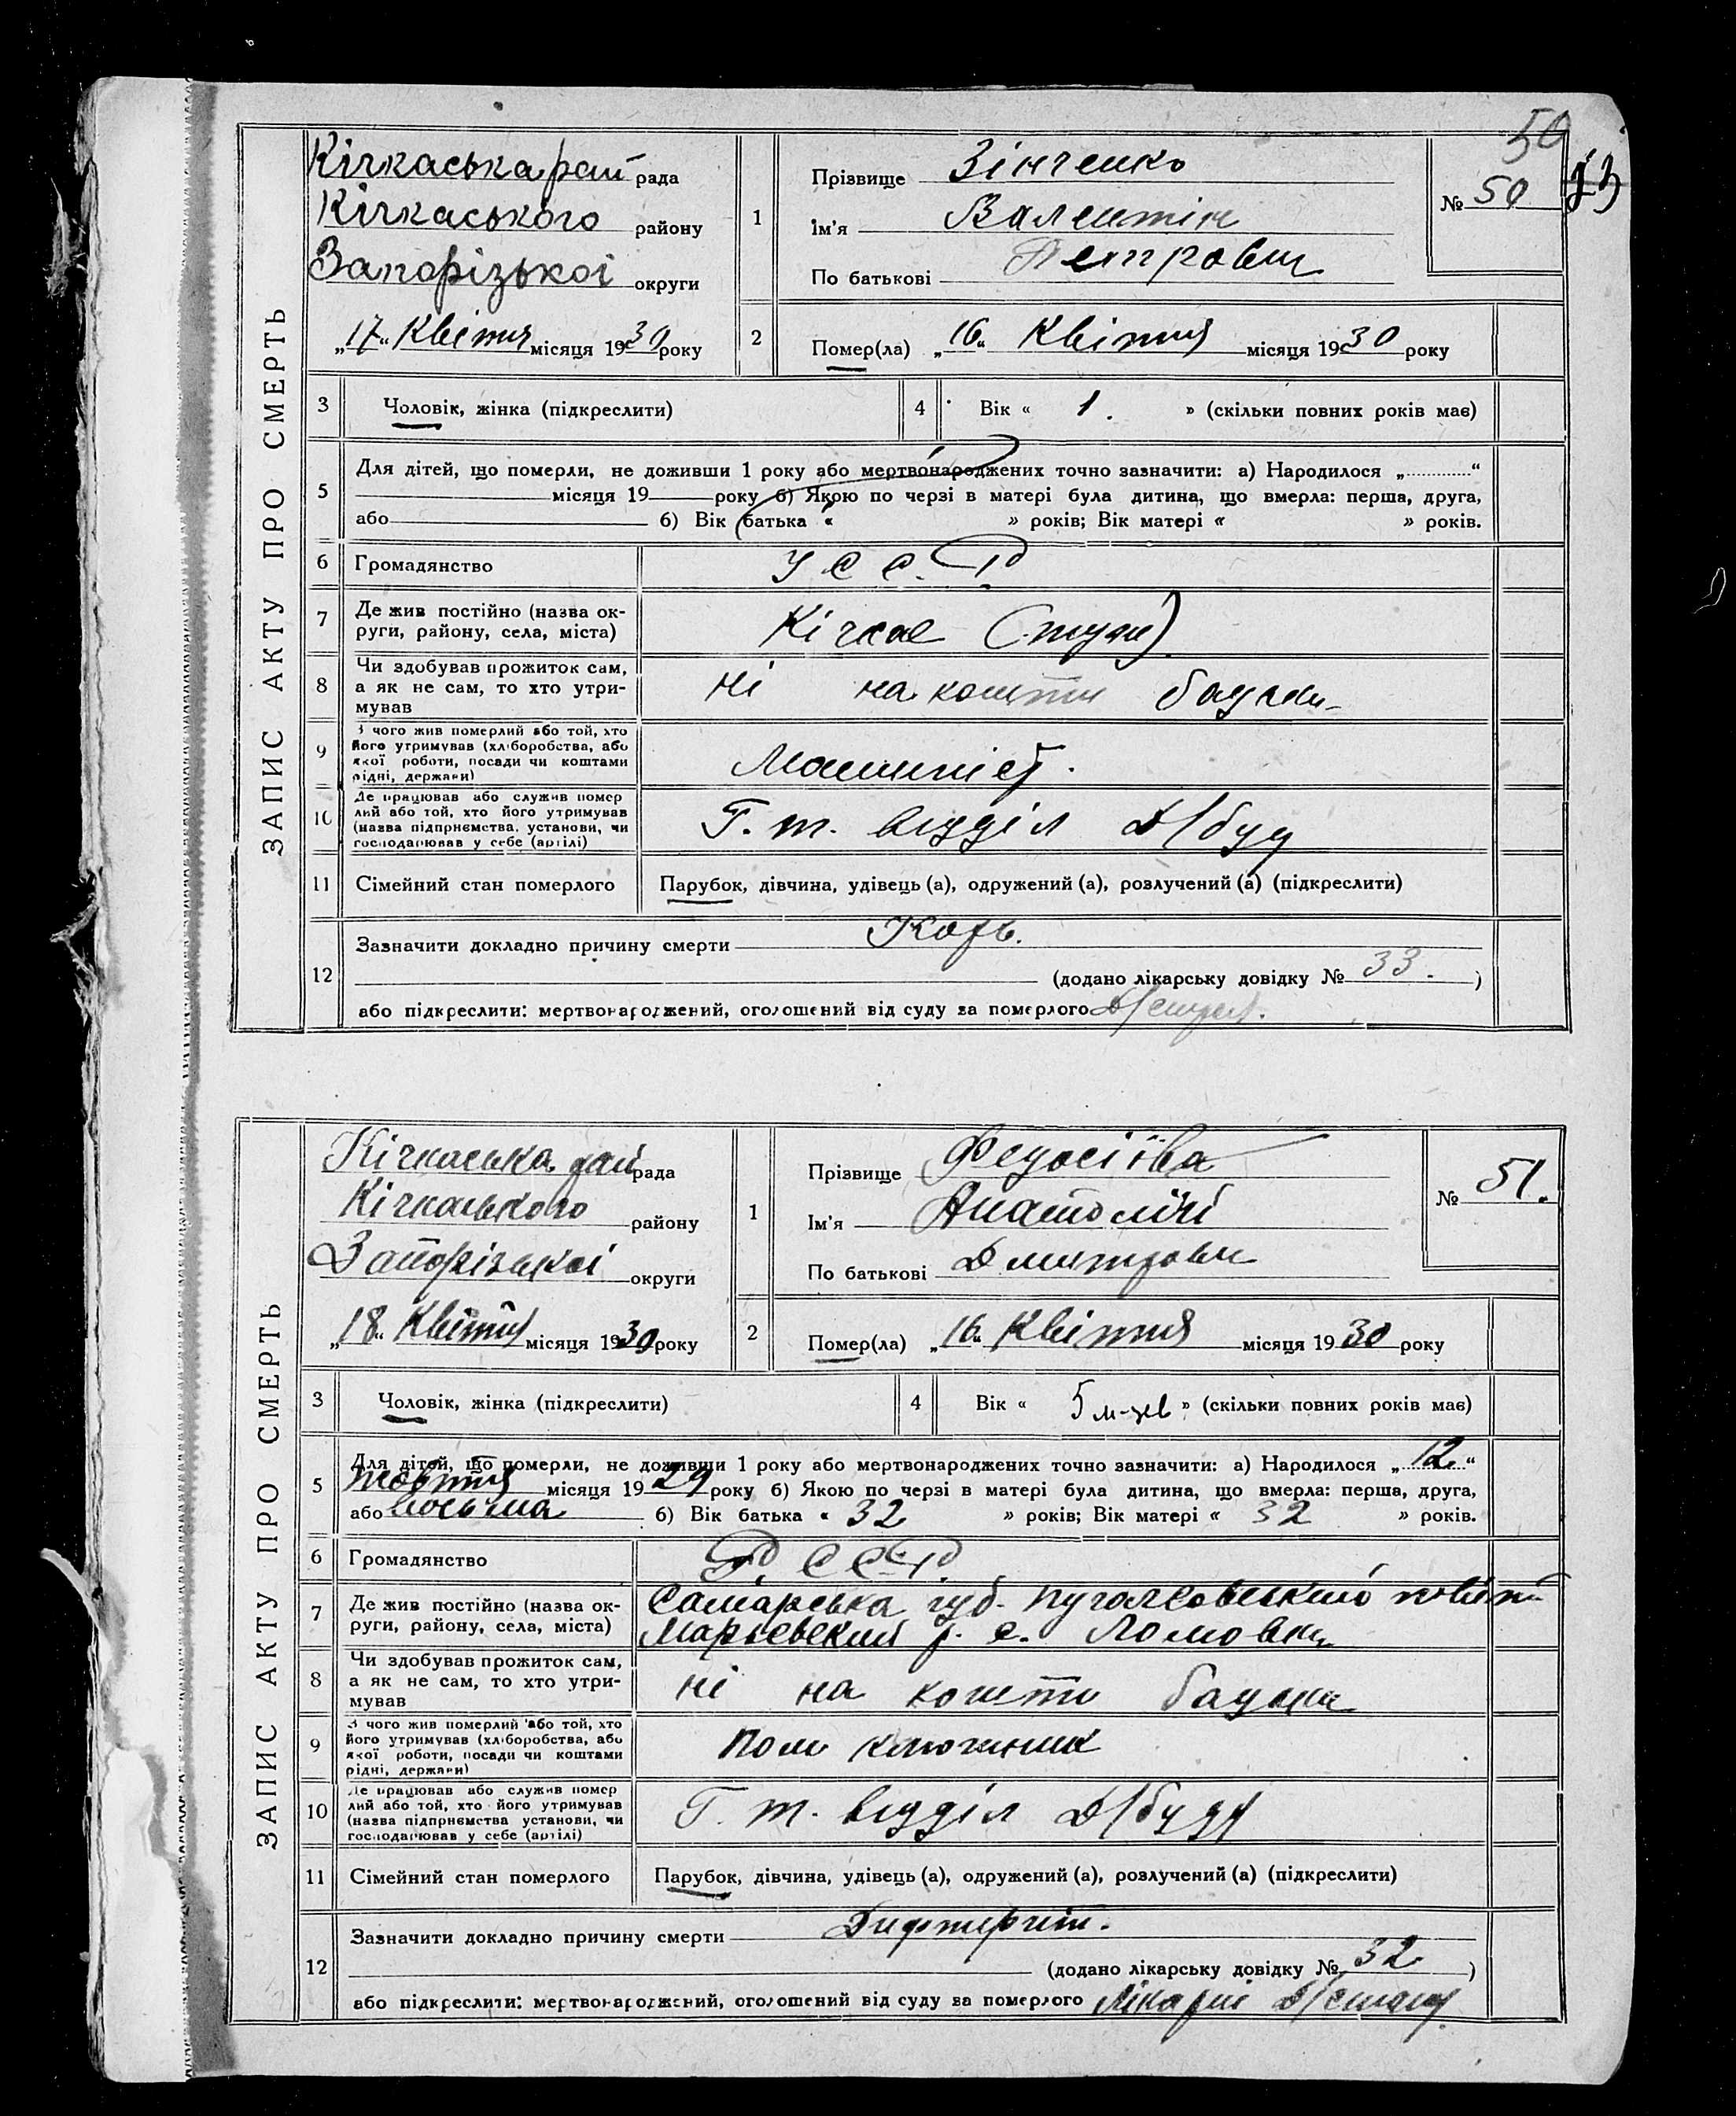 50
ЗАПИС АКТУ ПРО СМЕРТЬ
Кічкаська рай рада
Кічкаського району
Запорізької округи
„17“ Квітня місяця 1930 року
1 Прізвище Зінченко
Ім'я Валентін
По батькові Петрович
№ 50
2 Помер(ла) „16“ Квітня місяця 1930 року
3 Чоловік, жінка (підкреслити)
4 Вік « 1. » (скільки повних років має)
5 Для дітей, що померли, не доживши 1 року або мертвонароджених точно зазначити: а) Народилося „ “
місяця 19 року б) Якою по черзі в матері була дитина, що вмерла: перша, друга,
або б) Вік батька « » років; Вік матері « » років.
6 Громадянство У С С. Р
7 Де жив постійно (назва округи, району, села, міста) Кічкас (тут)
8 Чи здобував прожиток сам,
а як не сам, то хто утри-
мував ні на кошти батьки
9 З чого жив померлий або той, хто
його утримував (хліборобства, або
якої роботи, посади чи коштами
рідні, держави) Машиніст.
10 Де працював або служив помер
лий або той, хто його утримував
(назва підприємства, установи, чи
господарював у себе (артілі) Г. т. відділ Д/буд
11 Сімейний стан померлого Парубок, дівчина, удівець (а), одружений (а), розлучений (а) (підкреслити)
12 Зазначити докладно причину смерти Корь.
(додано лікарську довідку № 33. )
або підкреслити: мертвонароджений, оголошений від суду за померлого
ЗАПИС АКТУ ПРО СМЕРТЬ
Кічкаська рай рада
Кічкаського району
Запорізької округи
„18“ Квітня місяця 1930 року
1 Прізвище Федосіїва
Ім'я Анатолій
По батькові Дмитрович
№ 51.
2 Помер(ла) „16“ Квітня місяця 1930 року
3 Чоловік, жінка (підкреслити)
4 Вік « 5 м-цев » (скільки повних років має)
5 Для дітей, що померли, не доживши 1 року або мертвонароджених точно зазначити: а) Народилося „12“
жовтня місяця 1929 року б) Якою по черзі в матері була дитина, що вмерла: перша, друга,
або восьма б) Вік батька « 32 » років; Вік матері « 32 » років.
6 Громадянство Р. С С Р.
7 Де жив постійно (назва ок-
руги, району, села, міста) Самарська губ. Пугачовський повіт
Марьевский р. с. Ломовка
8 Чи здобував прожиток сам,
а як не сам, то хто утри-
мував ні на кошти батьки
9 З чого жив померлий або той, хто
його утримував (хліборобства, або
якої роботи, посади чи коштами
рідні, держави) пом ключник
10 Де працював або служив помер
лий або той, хто його утримував
(назва підприємства установи, чи
господарював у себе (артілі) Г. т. відділ Д/буду
11 Сімейний стан померлого Парубок, дівчина, удівець (а), одружений (а), розлучений (а) (підкреслити)
12 Зазначити докладно причину смерти Дифтерит.
(додано лікарську довідку № 32 )
або підкреслити: мертвонароджений, оголошений від суду за померлого Лікарні